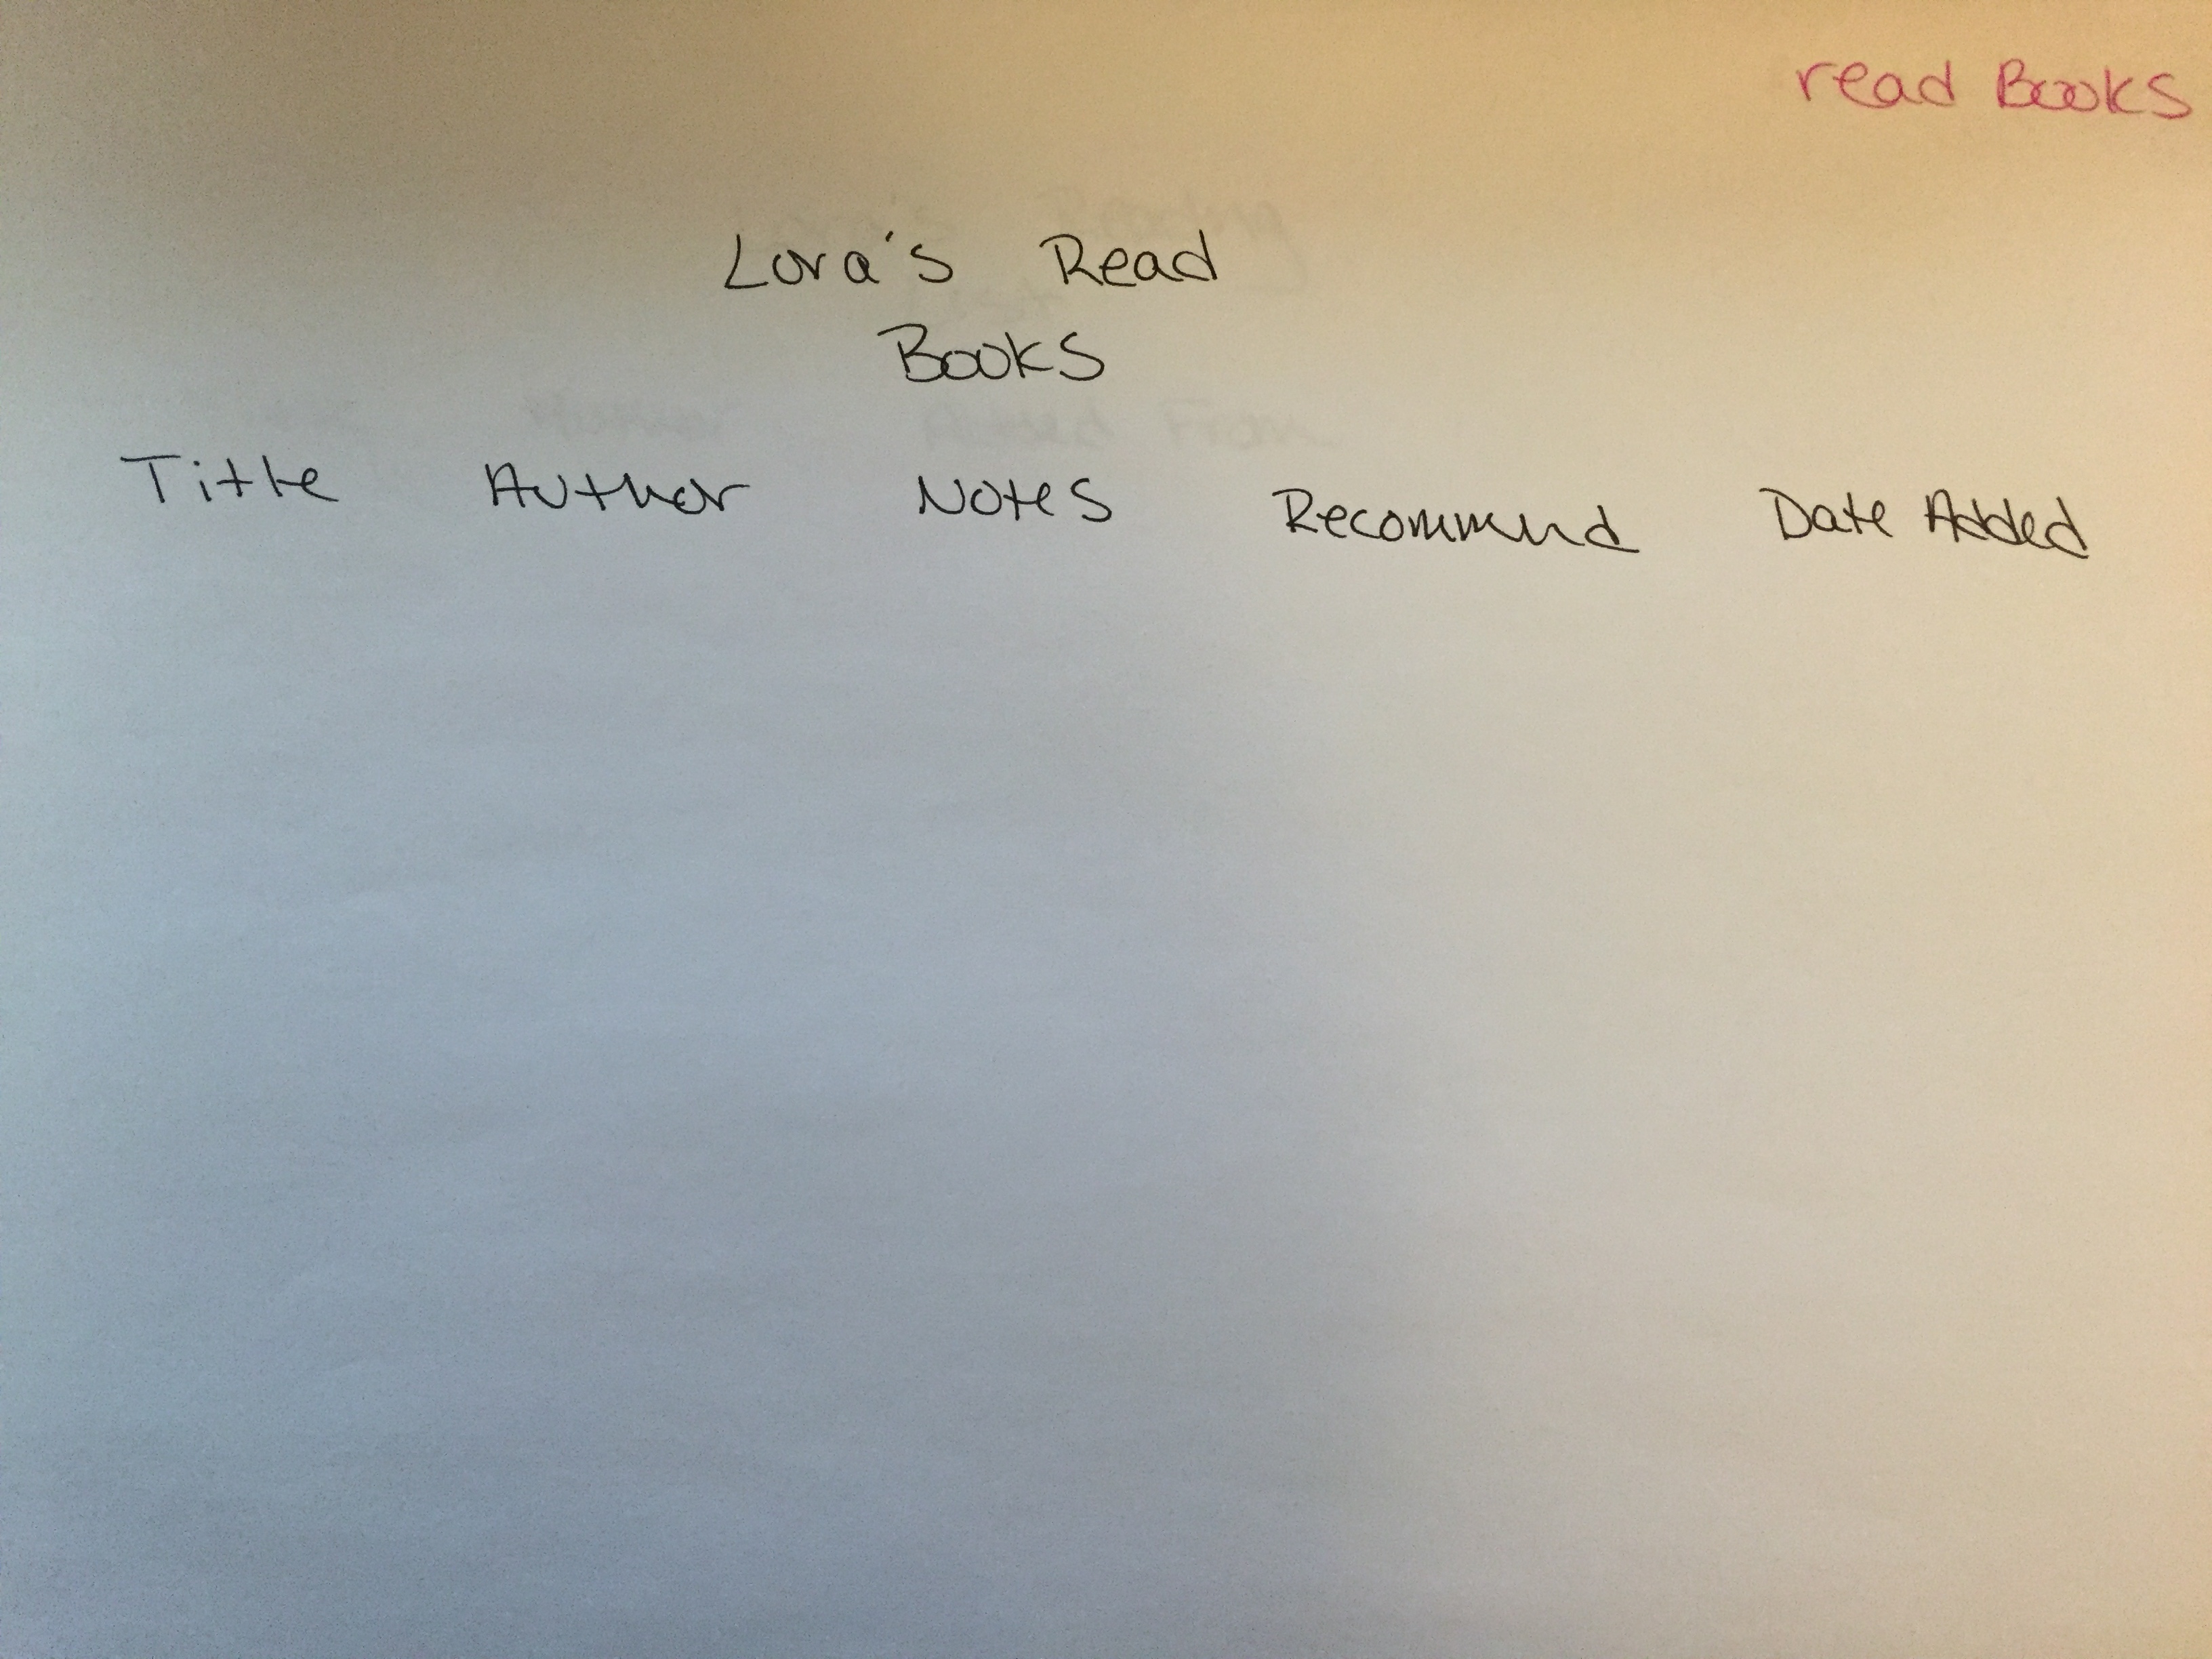 read Books
Lora's Read
Books
Title Author Notes Recommend Date Added